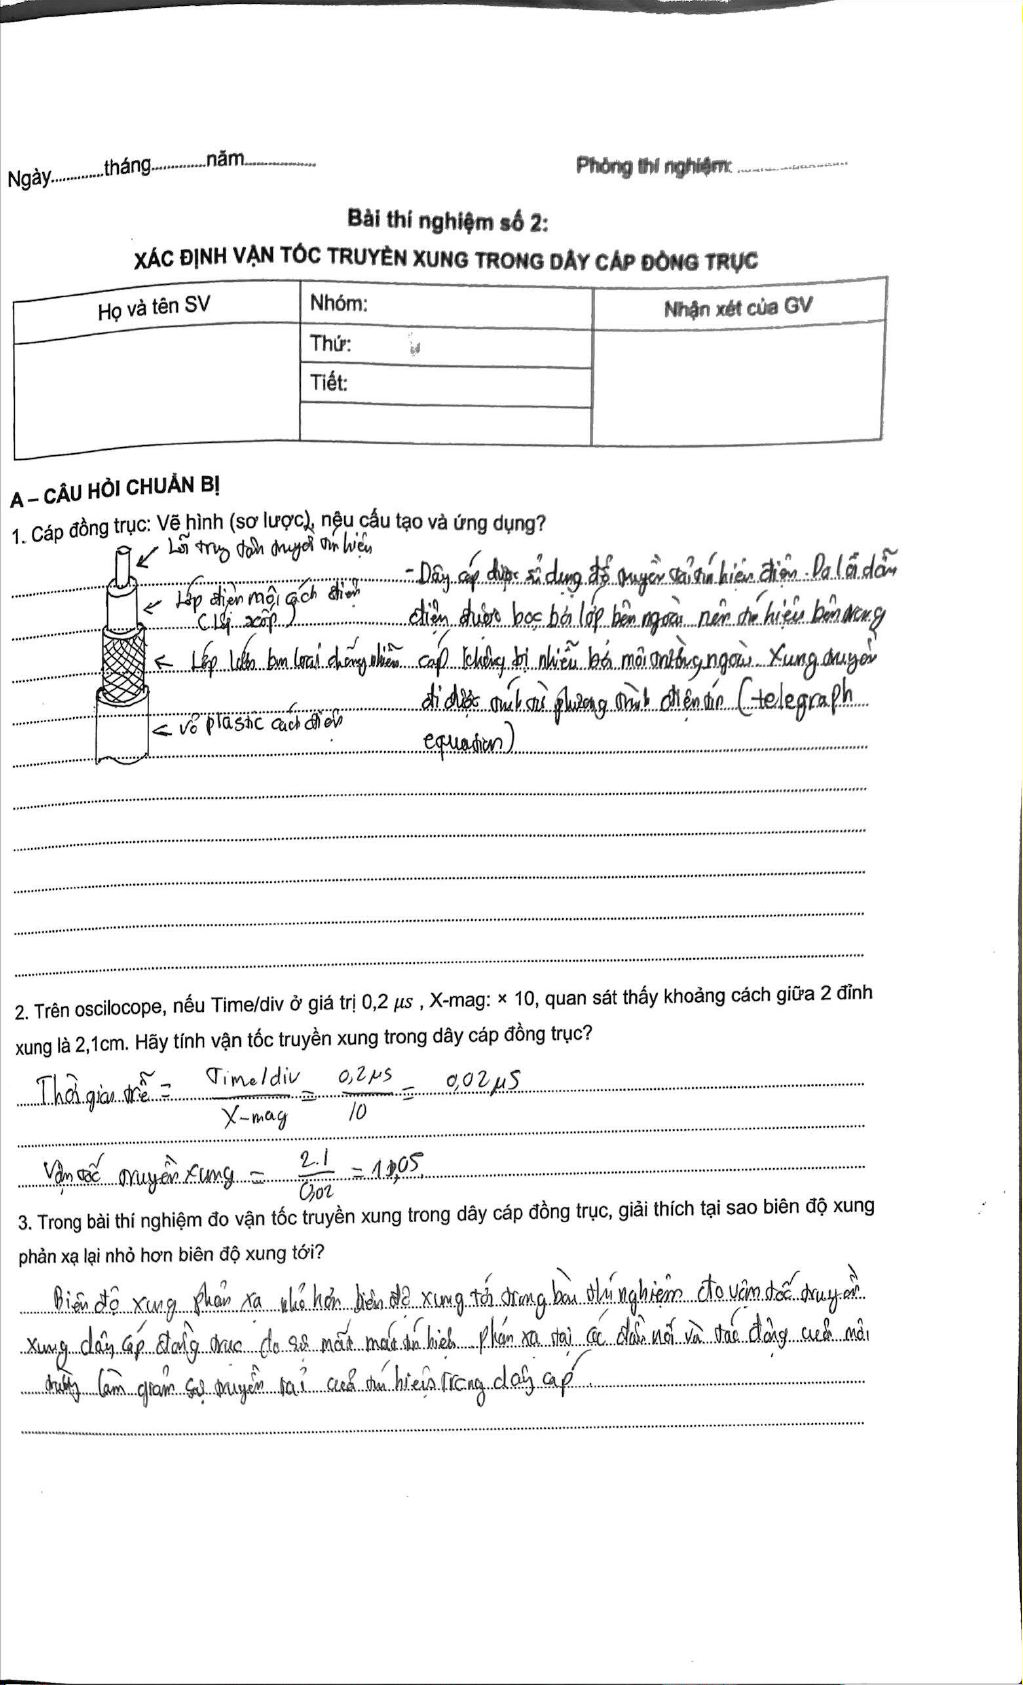 Ngày.............tháng..............năm..................
Phòng thí nghiệm: ............................
Bài thí nghiệm số 2:
XÁC ĐỊNH VẬN TỐC TRUYỀN XUNG TRONG DÂY CÁP ĐỒNG TRỤC
Họ và tên SV
Nhóm:
Nhận xét của GV
Thứ:
Tiết:
A – CÂU HỎI CHUẨN BỊ
1. Cáp đồng trục: Vẽ hình (sơ lược), nêu cấu tạo và ứng dụng?
Lõi trung tâm truyền tín hiệu
Lớp điện môi cách điện
(lõi xốp)
Lớp lưới kim loại chống nhiễu
vỏ plastic cách điện
- Dây cáp được sử dụng để truyền tải tín hiệu điện. Do lõi dẫn
điện được bọc bởi lớp bên ngoài nên tín hiệu bên trong
cáp không bị nhiễu bởi môi trường ngoài. Xung truyền
đi được tính từ phương trình điện tín (telegraph
equation)
2. Trên oscilocope, nếu Time/div ở giá trị 0,2 μs , X-mag: × 10, quan sát thấy khoảng cách giữa 2 đỉnh
xung là 2,1cm. Hãy tính vận tốc truyền xung trong dây cáp đồng trục?
Thời gian trễ = Time/div / X-mag = 0,2μs / 10 = 0,02μs
Vận tốc truyền xung = 2.1 / 0,02 =
3. Trong bài thí nghiệm đo vận tốc truyền xung trong dây cáp đồng trục, giải thích tại sao biên độ xung
phản xạ lại nhỏ hơn biên độ xung tới?
Biên độ xung phản xạ nhỏ hơn biên độ xung tới trong bài thí nghiệm đo vận tốc truyền
xung dây cáp đồng trục do sự mất mát tín hiệu phản xạ tại các đầu nối và tác động của môi
trường làm giảm sự truyền tải của tín hiệu trong dây cáp.